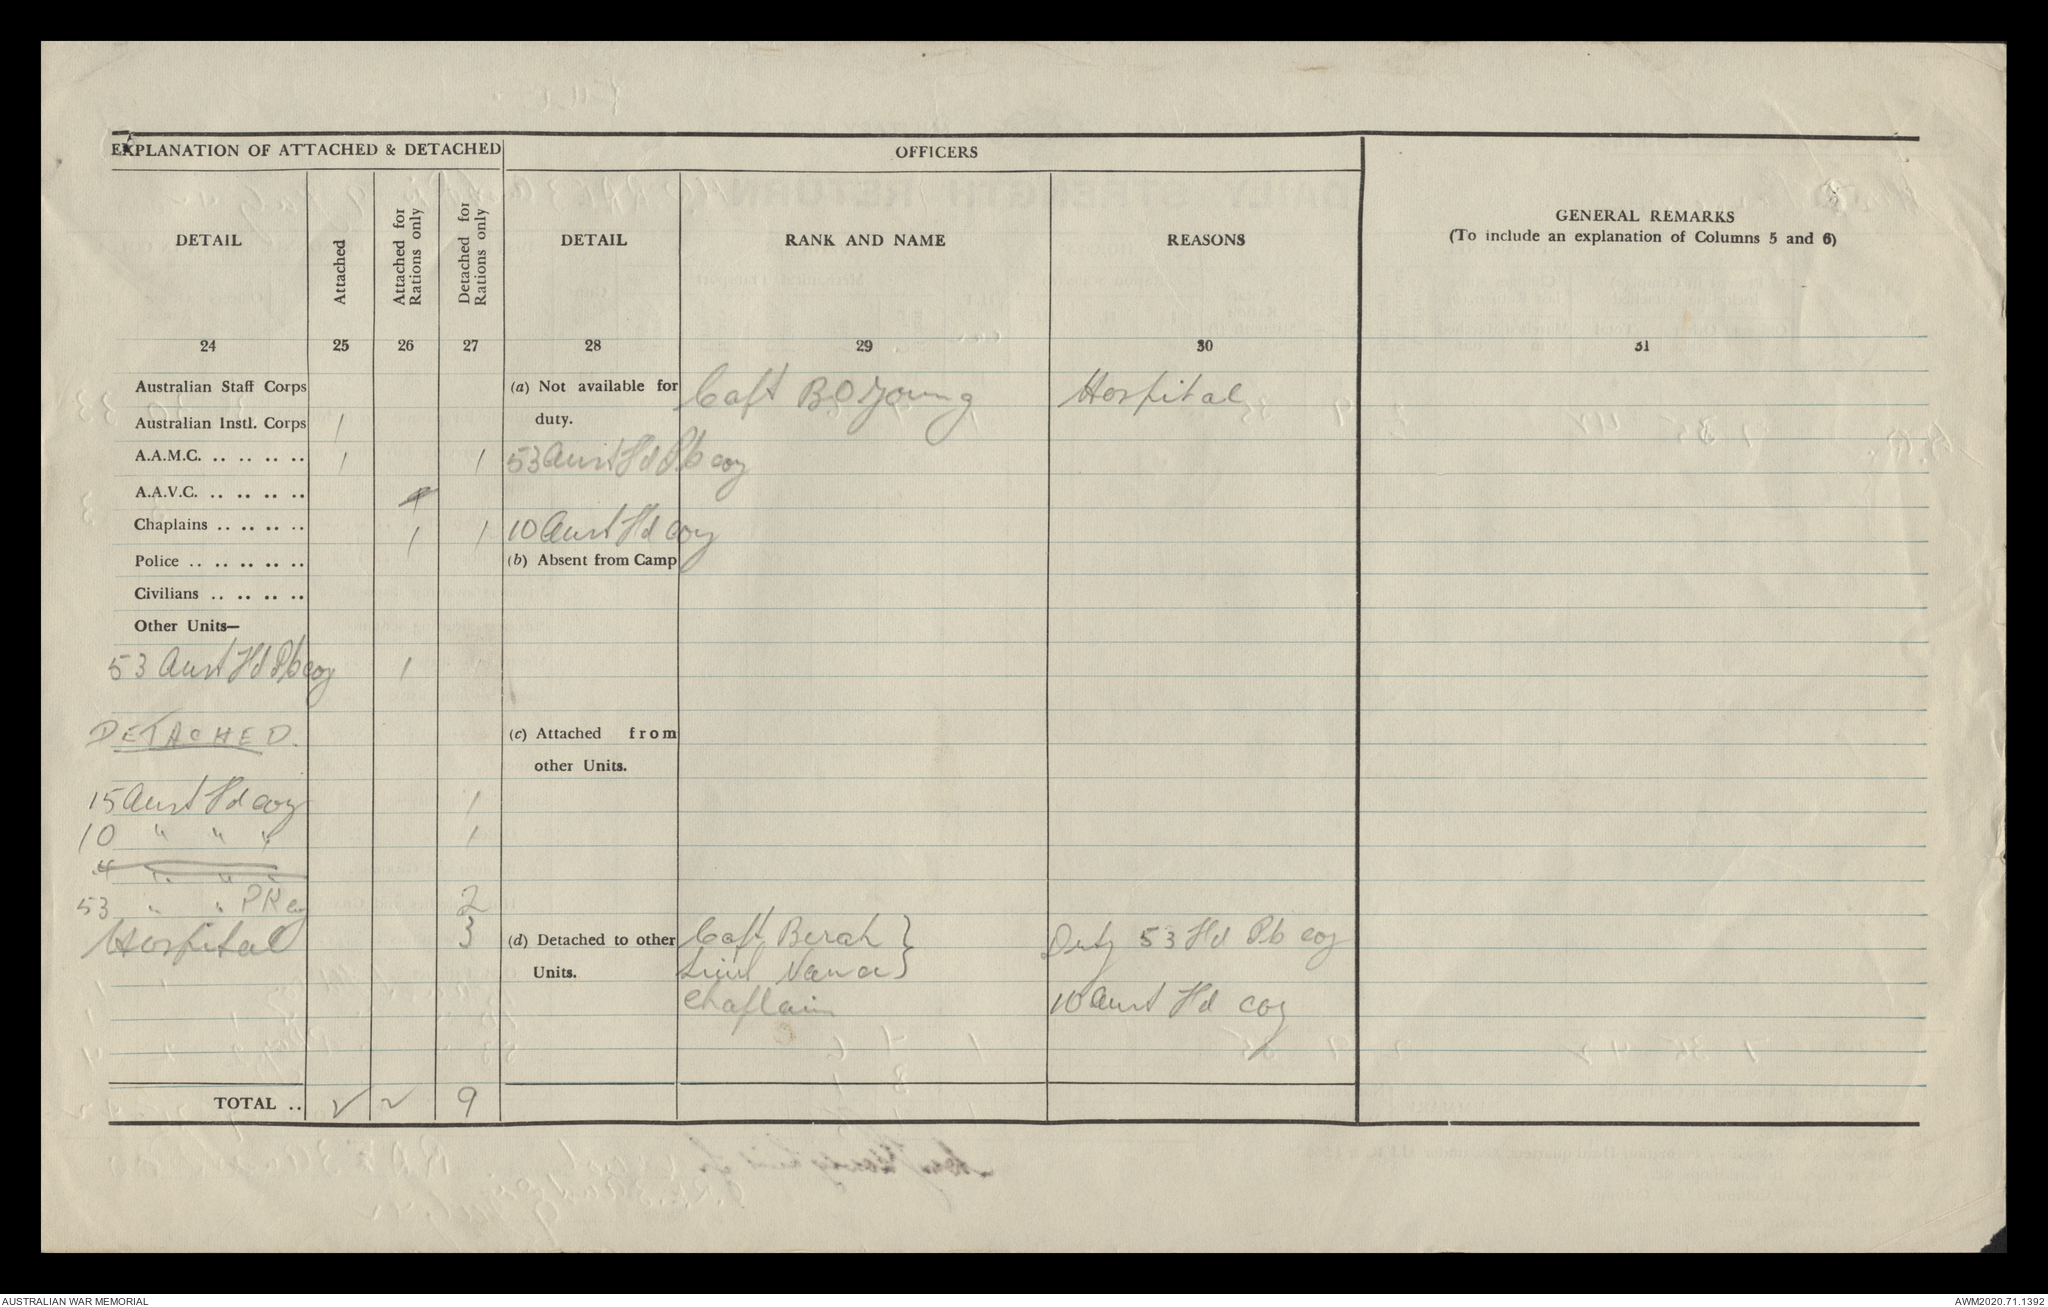 EXPLANATION OF ATTACHED & DETACHED
OFFICERS
GENERAL REMARKS
(To include an explanation of Columns 5 and 6)
DETAIL
Attached
Attached for Rations only
Detached for Rations only
DETAIL
RANK AND NAME
REASONS
24 25 26 27 28 29 30 31
Australian Staff Corps
(a) Not available for duty.
Capt B O Young
Hospital
Australian Instl. Corps 1
A.A.M.C. .. .. .. .. 1 1
53 Aust Fd Pk coy
A.A.V.C. .. .. .. ..
Chaplains .. .. .. .. 1 1
10 Aust Fd coy
Police .. .. .. .. .. ..
(b) Absent from Camp
Civilians .. .. .. ..
Other Units—
53 Aust Fd Pk coy 1
DETACHED.
(c) Attached from other Units.
15 Aust Fd coy 1
10 " " " 1
53 " " PK coy 2
Hospital 3
(d) Detached to other Units.
Capt Berah }
Duty 53 Fd Pk coy
Lieut }
Chaplain
10 Aust Fd coy
TOTAL .. 2 2 9
DAILY STRENGTH RETURN
AUSTRALIAN WAR MEMORIAL
AWM2020.71.1392